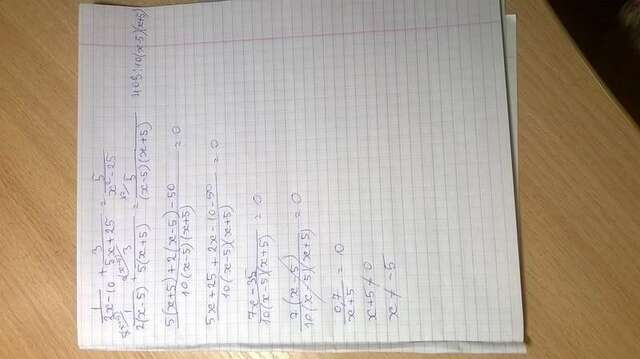 1/(2x-10) + 3/(5x+25) = 5/(x²-25)
1/(2(x-5)) + 3/(5(x+5)) = 5/((x-5)(x+5)) НОЗ: 10(x-5)(x+5)
(5(x+5)+2(x-5)-50)/(10(x-5)(x+5)) = 0
(5x+25+2x-10-50)/(10(x-5)(x+5)) = 0
(7x-35)/(10(x-5)(x+5)) = 0
(7(x-5))/(10(x-5)(x+5)) = 0
0,7/(x+5) = 0
x+5≠0
x≠-5